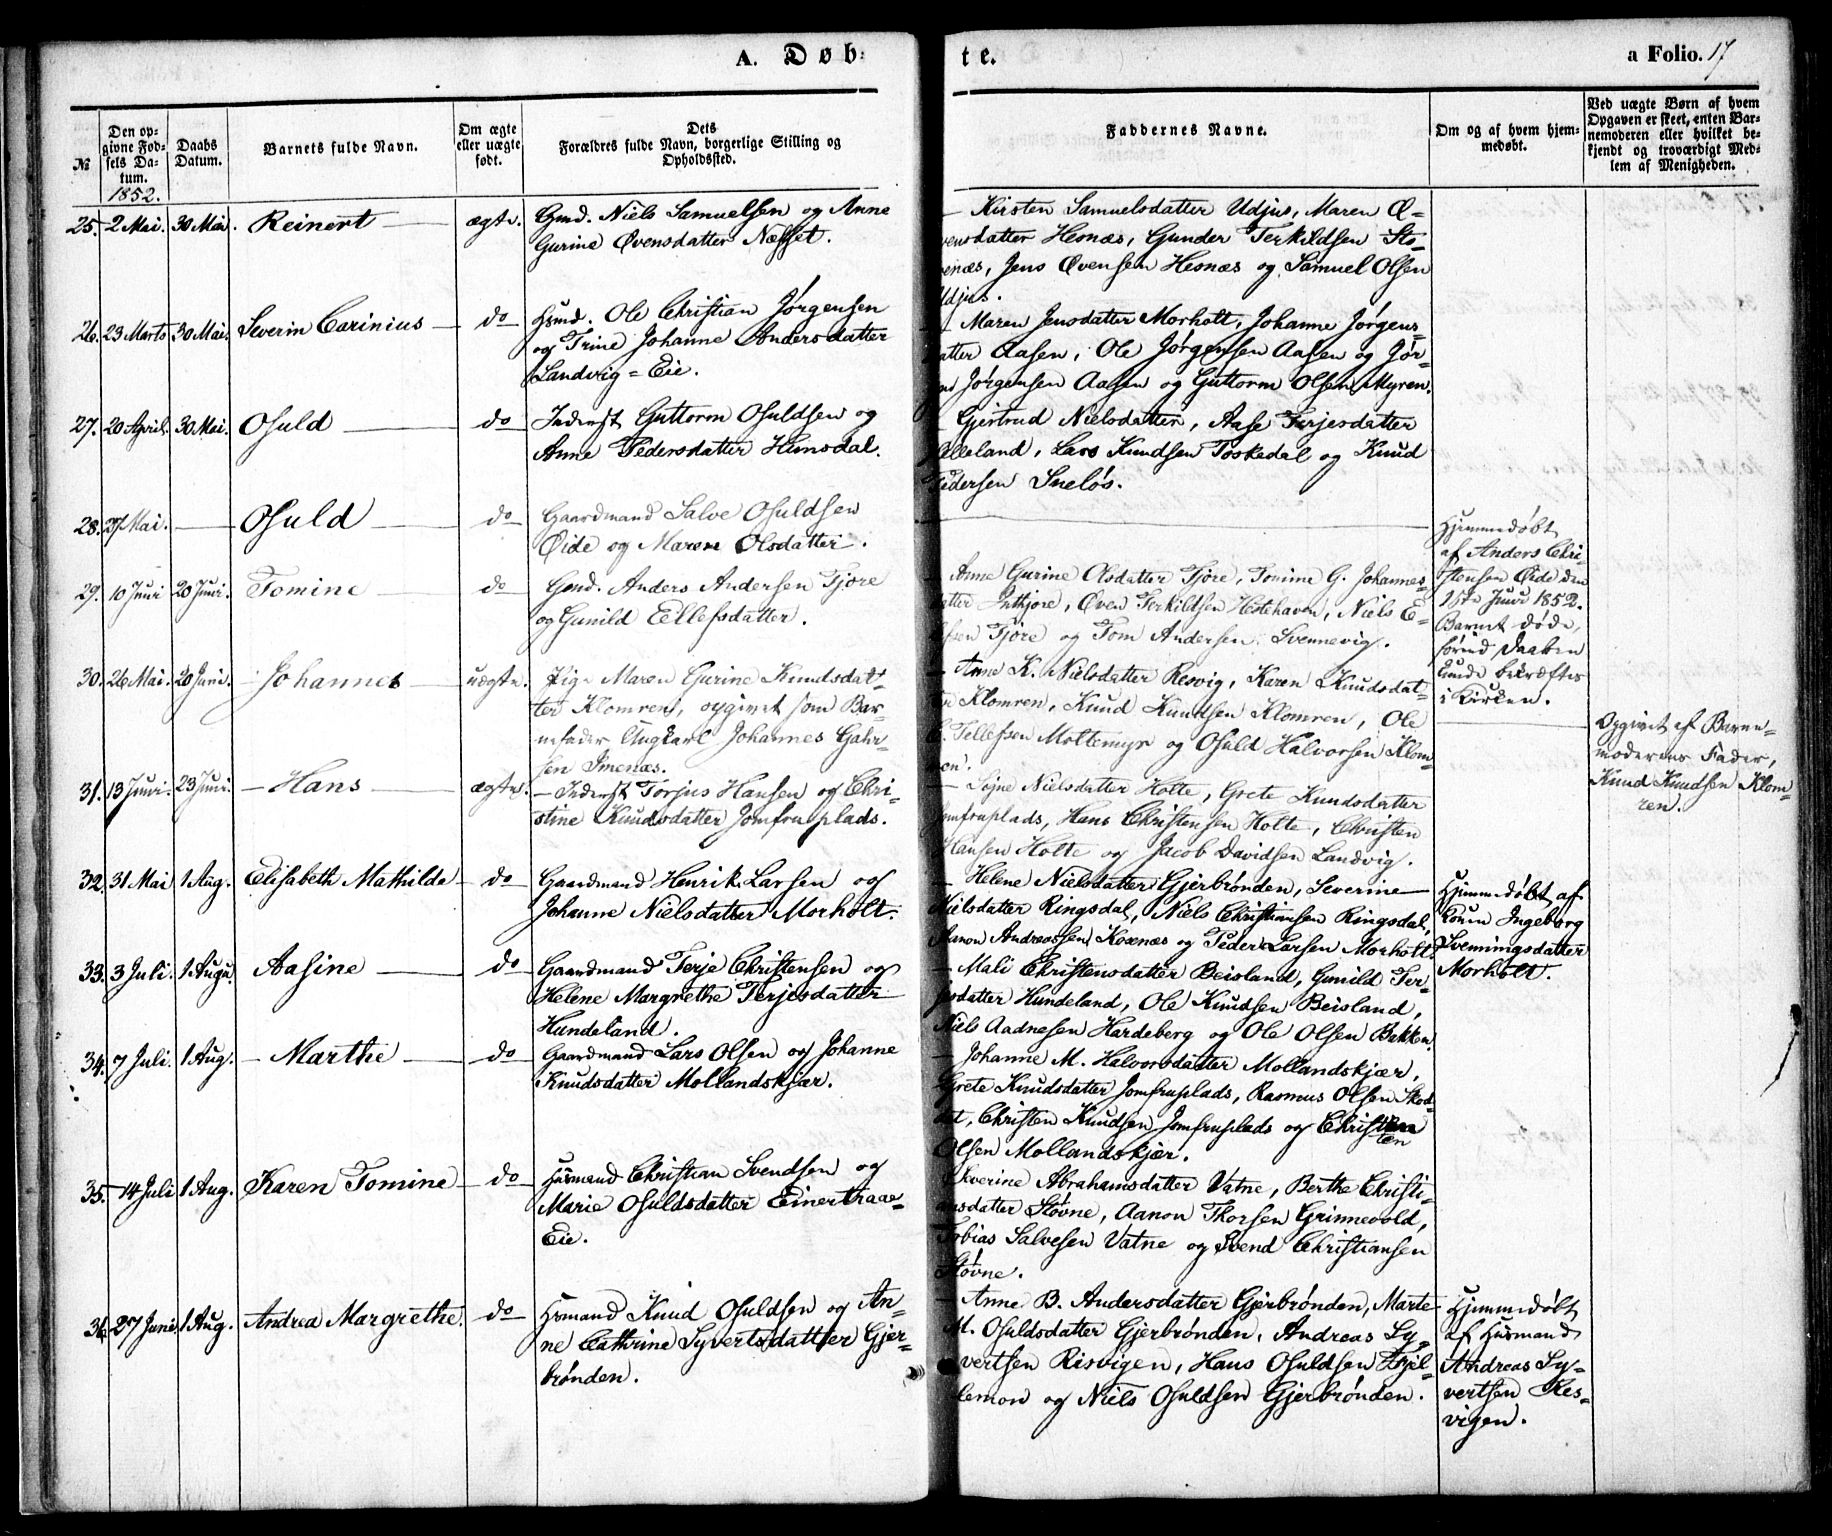 A. Døb-
te.
a Folio. 17
№
Den op-
givne Fød-
sels Da-
tum.
1852.
Daabs
Datum.
Barnets fulde Navn.
Om ægte
eller uægte
født.
Dets
Forældres fulde Navn, borgerlige Stilling og
Opholdssted.
Faddernes Navne.
Om og af hvem hjem-
medøbt.
Ved uægte Børn af hvem
Opgaven er skeet, enten Bar-
nemoderen eller hvilket be-
kjendt og troværdigt Med-
lem af Menigheden.
25. 2 Mai. 30 Mai. Reinert ægte.
Gmd. Niels Samuelsen og Anne
Gurine Øvensdatter Næsset.
Kirsten Samuelsdatter Udjus, Maren Ø-
vensdatter Hesnæs, Gunder Terkildsen Sto-
enæs, Jens Øvensen Hesnæs og Samuel Olsen
Udjus.
26. 23 Marts 30 Mai. Severin Carinius do
Hsmd. Ole Christian Jørgensen
og Trine Johanne Andersdatter
Landvig-Eie.
Maren Jensdatter Morholt, Johanne Jørgens-
datter Aasen, Ole Jørgensen Aasen og Jør-
Jørgensen Aasen og Guttorm Olsen Myren.
27. 20 April. 30 Mai. Osuld do
Inderst Guttorm Osuldsen og
Anne Pedersdatter Humsdal.
Gjertrud Nielsdatter, Aase Terjesdatter
elleland, Lars Knudsen Toskedal og Knud
Pedersen Sneløs.
28. 27 Mai. Osuld do
Gaardmand Salve Osuldsen
Øide og Maren Olsdatter.
Hjemmedøbt
af Anders Chri-
stensen Øide den
1ste Juni 1852.
Barnet døde,
førend Daaben
kunde bekræftes
i Kirken.
29. 10 Juni 20 Juni. Tomine do
Gmd. Anders Andersen Tjore
og Gunild Ellefsdatter.
Anne Gurine Olsdatter Tjore, Tomine G. Johannes-
datter Inntjore, Øven Terkildsen Hestehaven, Niels E-
lefsen Tjore og Tom Andersen Svennevig.
30. 26 Mai. 20 Juni. Johannes uægte.
Pige Maren Gurine Knudsdat-
ter Klomren, opgivet som Bar-
nefader Ungkarl Johannes Gahr-
sen Imenæs.
Anne K. Nielsdatter Resvig, Karen Knudsdat-
ter Klomren, Knud Knudsen Klomren, Ole
Tellefsen Moltemyr og Osuld Halvorsen Klom-
ren.
Opgivet af Barne-
moderens Fader,
Knud Knudsen Klom-
ren.
31. 13 Juni. 23 Juni. Hans ægte.
Inderst Torjus Hansen og Chri-
stine Knudsdatter Jomfruplads.
Signe Nielsdatter Holte, Grete Knudsdatter
Jomfruplads, Hans Christensen Holte, Christen
Hansen Holte og Jacob Davidsen Landvig.
32. 31 Mai 1 Aug. Elisabeth Mathilde do
Gaardmand Henrik Larsen og
Johanne Nielsdatter Morholt.
Helene Nielsdatter Gjerbrønden, Severine
Nielsdatter Ringsdal, Niels Christiansen Ringsdal,
Aanon Andreassen Koxnæs og Peder Larsen Morholt.
Hjemmedøbt af
Konen Ingeborg
Svenningsdatter
Morholt.
33. 3 Juli. 1 Augu. Aasine do
Gaardmand Terje Christensen og
Helene Margrethe Terjesdatter
Hundeland.
Mali Christensdatter Beisland, Gunild Ter-
jesdatter Hundeland, Ole Knudsen Beisland,
Niels Aadnesen Hardeberg og Ole Olsen Bakken.
34. 7 Juli. 1 Aug. Marthe do
Gaardmand Lars Olsen og Johanne
Knudsdatter Mollandskjær.
Johanne M. Halvorsdatter Mollandskjær,
Grete Knudsdatter Jomfruplads, Rasmus Olsen Skod-
Christen Knudsen Jomfruplads og Christen
ten
Olsen Mollandskjær.
35. 14 Juli 1 Aug. Karen Tomine do
Husmand Christian Svendsen og
Marie Osuldsdatter Einertraae-
Eie.
Severine Abrahamsdatter Vatne, Berthe Christi-
ansdatter Støvne, Aanon Thorsen Grinnevold,
Tobias Salvesen Vatne og Svend Christiansen
Støvne.
36. 27 Juni 1 Aug. Andrea Margrethe do
Hsmand Knud Osuldsen og An-
ne Cathrine Syvertsdatter Gjer-
brønden.
Anne B. Andersdatter Gjerbrønden, Marte
M. Osuldsdatter Gjerbrønden, Andreas Sy-
vertsen Risvigen, Hans Osuldsen
lemon og Niels Osuldsen Gjerbrønden.
Hjemmedøbt
af Husmand
Andreas Sy-
vertsen Res-
vigen.